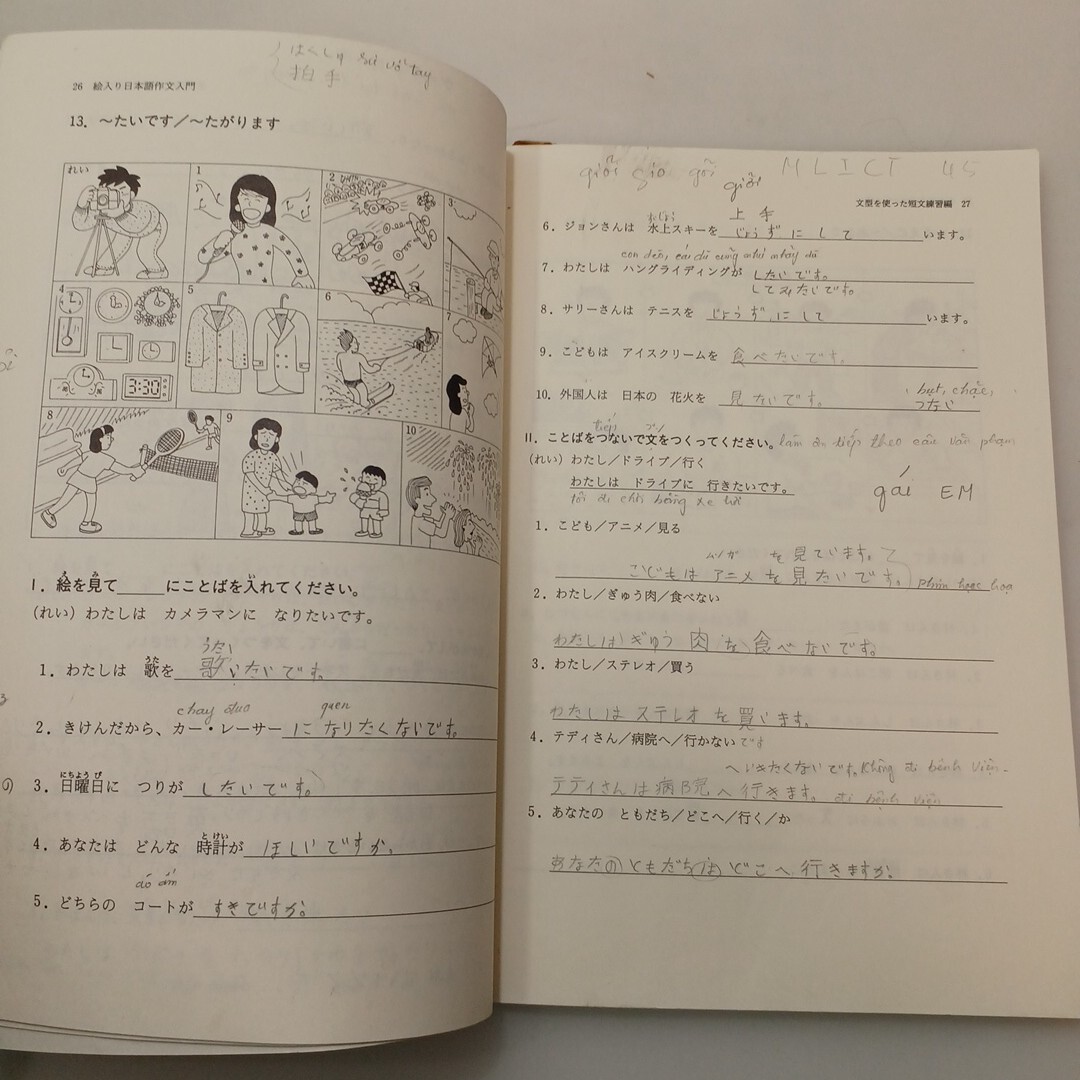 はくしゅ sự vỗ tay
拍手
26 絵入り日本語作文入門
13. ～たいです／～たがります
れい
1
2
3
4
5
6
7
8
9
10
3:30
I. 絵を見て____にことばを入れてください。
(れい) わたしは カメラマンに なりたいです。
うたい
1. わたしは 歌を 歌いたいです。
chạy đua quen
2. きけんだから、カー・レーサー になりたくないです。
3. 日曜日に つりが したいです。
4. あなたは どんな 時計が ほしいですか。
áo ấm
5. どちらの コートが すきですか。
giỏi gio gõi MLICT 45
giỏi
文型を使った短文練習編 27
上手
6. ジョンさんは 氷上スキーを じょうずにして います。
7. わたしは ハングライディングが したいです。
してみたいです。
8. サリーさんは テニスを じょうずにして います。
9. こどもは アイスクリームを 食べたいです。
10. 外国人は 日本の 花火を 見たいです。
II. ことばをつないで文をつくってください。 làm ăn tiếp theo câu văn phạm
(れい) わたし／ドライブ／行く
わたしは ドライブに 行きたいです。
tôi đi chơi bằng xe hơi
gái EM
1. こども／アニメ／見る
を見ています。
こどもは アニメを見たいです。 phim hoạt họa
2. わたし／ぎゅう肉／食べない
わたしはぎゅう肉を食べないです。
3. わたし／ステレオ／買う
わたしは ステレオを買います。
4. テディさん／病院へ／行かない です
へいきたくないです。 Không đi bệnh viện.
テディさんは病院へ行きます。 đi bệnh viện
5. あなたの ともだち／どこへ／行く／か
あなたのともだちは どこへ 行きますか。